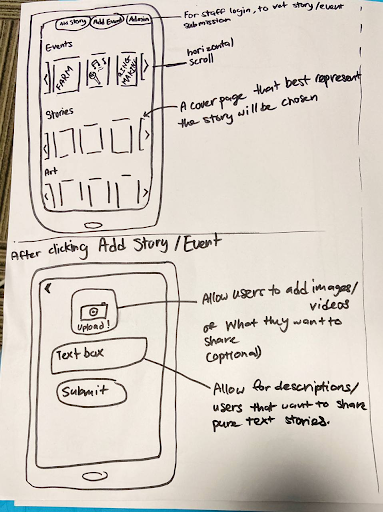 Add Story
Add Event
Admin
For staff login, to vet story/event
submission
Events
horizontal
scroll
FARM
MAKING
Stories
A cover page that best represent
the story will be chosen
Art
After clicking Add Story/Event
Upload!
Allow users to add images/
videos
of what they want to
share
(optional)
Text box
Submit
Allow for descriptions/
users that want to share
pure text stories.